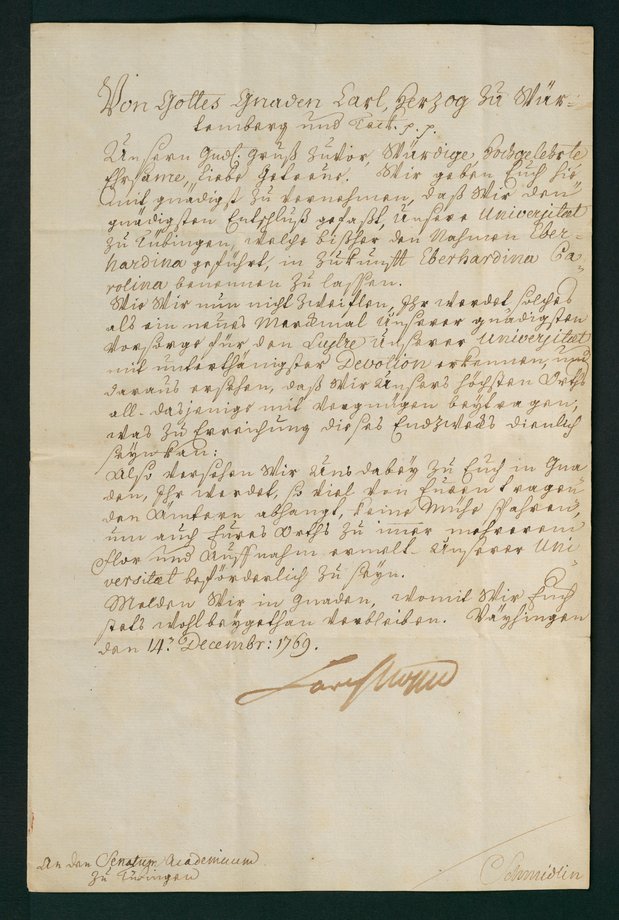 Von Gottes Gnaden Carl, Herzog zu Wür-
temberg und Teck. p. p.
Unsern Gndl. Gruß zuvor, Würdige, Hochgelehrte
Ehrsame, liebe Getreue. Wir geben Euch hie
mit gnädigst zu vernehmen, daß Wir den
gnädigsten Entschluß gefaßt, Unsere Universitaet
zu Tübingen, welche bißher den Nahmen Eber-
hardina geführt, in Zukunfft Eberhardina Ca-
rolina benennen zu lassen.
Wie Wir nun nicht zweiflen, Ihr werdet solches
als ein neues Merckmal Unserer gnädigsten
Vorsorge für den Lustre Unserer Universitaet
mit unterthänigster Devotion erkennen, und
daraus ersehen, daß Wir Unsers höchsten Orths
all- dasjenige mit Vergnügen beytragen,
was zu Erreichung dieses Endzweks dienlich
seyn kan:
Also versehen Wir Uns dabey zu Euch in Gna
den, Ihr werdet, so viel von Euren tragen-
den Ämtern abhangt, keine Mühe spahren,
um auch Eures Orths zu immer mehrerem
Flor und Auffnahm ermelt- Unserer Uni
versitaet beförderlich zu seyn.
Melden Wir in Gnaden, womit Wir Euch
stets wohlbeygethan verbleiben. Vayhingen
den 14. Decembr: 1769.
Carl Herzog
An den Senatum Academicum
zu Tübingen
Schmidlin